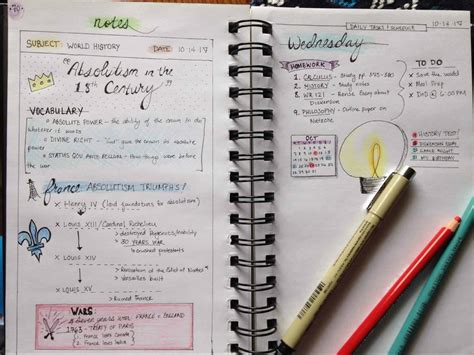 notes
SUBJECT: WORLD HISTORY DATE: 10-14-17
"Absolutism in the
18th Century"
VOCABULARY
ABSOLUTE POWER - the ability of the crown to do
whatever it wants
DIVINE RIGHT - "God" gave the crown its absolute
power
STATUS QUO ANTE BELLUM - how things were before
the war
france ABSOLUTISM TRIUMPHS!
x Henry IV (laid foundations for absolutism)
x Louis XIII / Cardinal Richelieu
> destroyed Huguenots/nobility
> 30 YEARS WAR
crushed protestants
x LOUIS XIV
> Revocation of the Edict of Nantes
> Versailles built
x LOUIS XV
> Ruined France
WARS:
Seven years war FRANCE v ENGLAND
1763 - TREATY OF PARIS
1. France loses Canada
2. France loses India
DAILY TASKS / SCHEDULE 10-14-17
Wednesday
HOMEWORK
1. CALCULUS - Study pp.
2. HISTORY - Study notes
3. WR 121 - Revise Essay about
Dickinson
4. PHILOSOPHY - Outline paper on
Nietzsche
TO DO
x Save the world
x Meal Prep
x DnD @ 6:00 PM
OCT
HISTORY TEST!
DICKINSON ESSAY
GAME NIGHT
MY BIRTHDAY